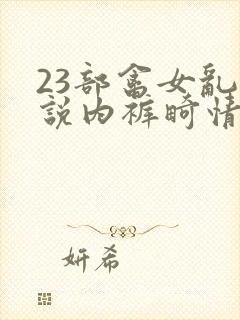 23部畜女乱
説内裤畸情
妍希